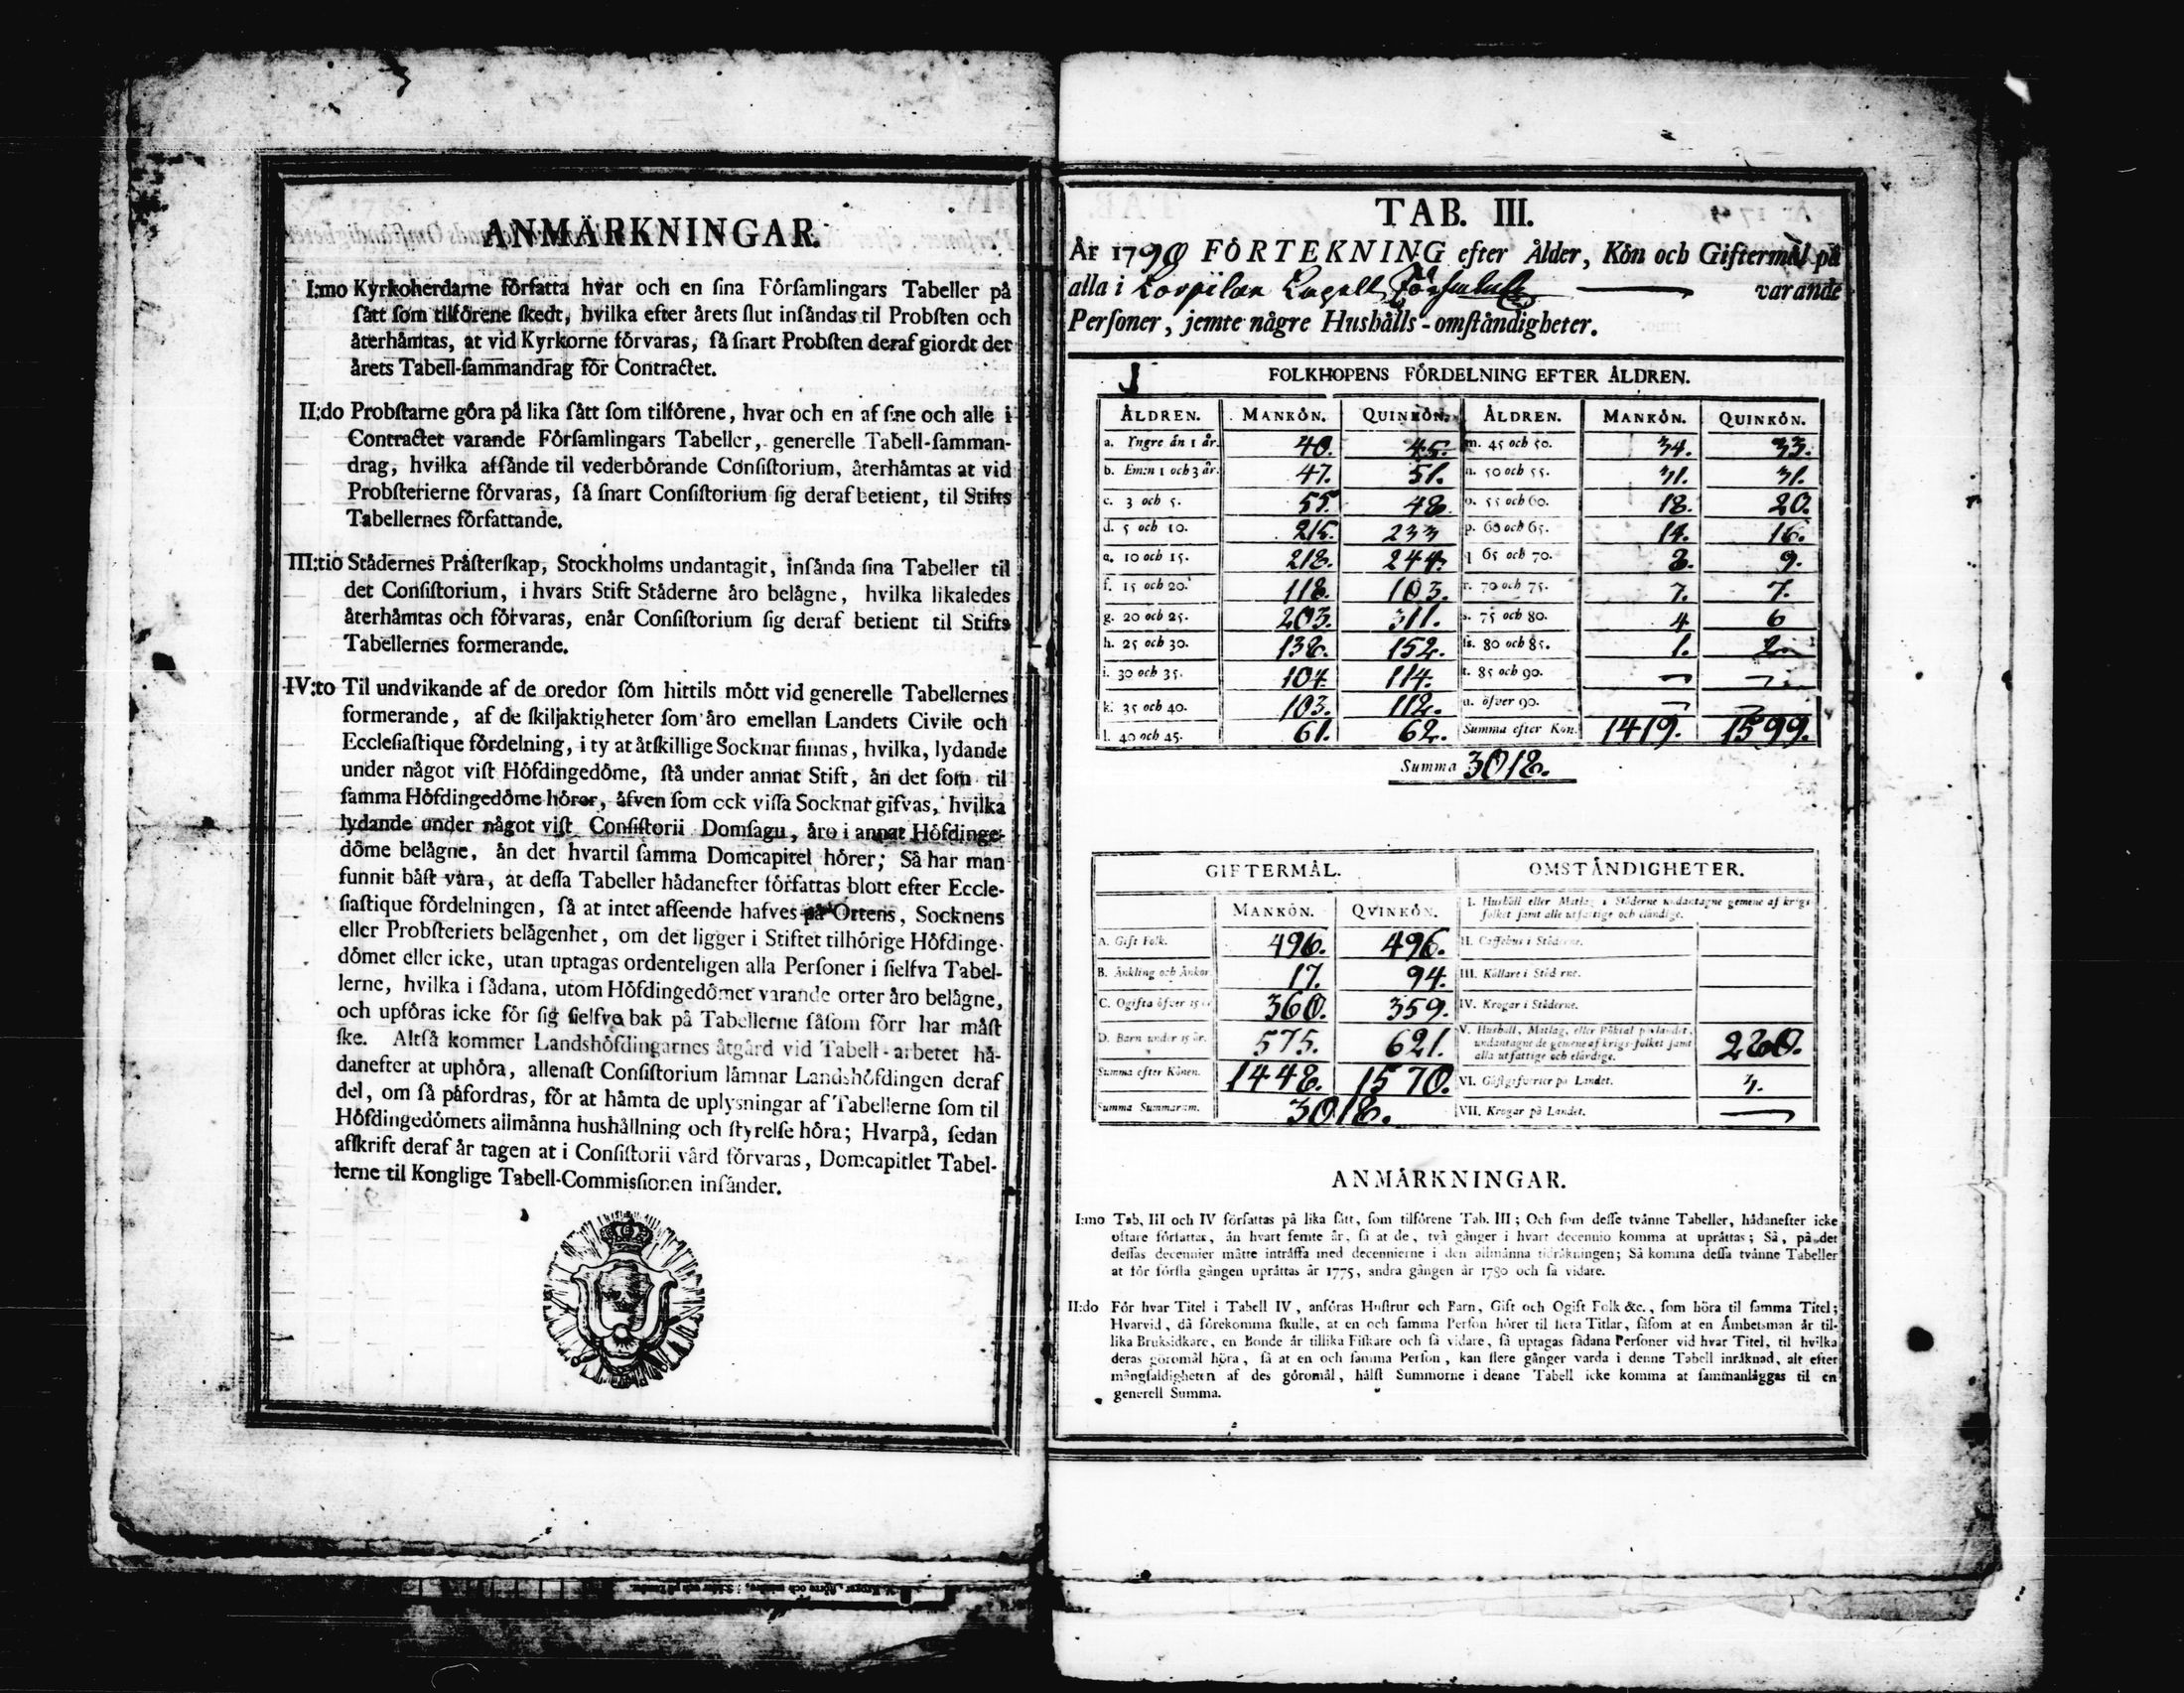 ANMÄRKNINGAR.
I:mo Kyrkoherdarne författa hvar och en sina Församlingars Tabeller på
sätt som tilförene skedt, hvilka efter årets slut insåndas til Probsten och
återhåmtas, at vid Kyrkorne förvaras, så snart Probsten deraf giordt det
årets Tabell-sammandrag för Contractet.
II:do Probstarne göra på lika sätt som tilförene, hvar och en af sine och alle i
Contractet varande Församlingars Tabeller, generelle Tabell-samman-
drag, hvilka afsände til vederbörande Consistorium, återhåmtas at vid
Probsterierne förvaras, så snart Consistorium sig deraf betient, til Stifts
Tabellernes författande.
III:tio Städernes Prästerskap, Stockholms undantagit, insända sina Tabeller til
det Consistorium, i hvars Stift Städerne äro belägne, hvilka likaledes
återhåmtas och förvaras, enär Consistorium sig deraf betient til Stifts
Tabellernes formerande.
IV:to Til undvikande af de oredor som hittils mött vid generelle Tabellernes
formerande, af de skiljaktigheter som äro emellan Landets Civile och
Ecclesiastique fördelning, i ty at åtskillige Socknar finnas, hvilka, lydande
under något visst Höfdingedöme, stå under annat Stift, än det som til
samma Höfdingedöme hörer, äfven som ock vissa Socknar gifvas, hvilka
lydande under något vist Consistorii Domsagu, äro i annat Höfdinge-
döme belägne, än det hvartil samma Domcapitel hörer; Så har man
funnit bäst vara, at dessa Tabeller hädanefter författas blott efter Eccle-
siastique fördelningen, så at intet afseende hafves på Ortens, Socknens
eller Probsteriets belägenhet, om det ligger i Stiftet tilhörige Höfdinge-
dömet eller icke, utan uptagas ordenteligen alla Personer i sielfva Tabel-
lerne, hvilka i sådana, utom Höfdingedömet varande orter äro belägne,
och upföras icke för sig sielfva bak på Tabellerne såsom förr har måst
ske. Altså kommer Landshöfdingarnes åtgärd vid Tabell-arbetet hä-
danefter at uphöra, allenast Consistorium lämnar Landshöfdingen deraf
del, om så påfordras, för at hämta de uplysningar af Tabellerne som til
Höfdingedömets allmänna hushållning och styrelse höra; Hvarpå, sedan
afskrift deraf är tagen at i Consistorii vård förvaras, Domcapitlet Tabel-
lerne til Konglige Tabell-Commissionen insänder.
TAB. III.
År 1790 FÖRTEKNING efter Ålder, Kön och Giftermål på
alla i varande
Personer, jemte någre Hushålls-omständigheter.
FOLKHOPENS FÖRDELNING EFTER ÅLDREN.
ÅLDREN. MANKÖN. QUINKÖN. ÅLDREN. MANKÖN. QUINKÖN.
a. Yngre än 1 år. 40. 45. m. 45 och 50. 34. 33.
b. Em:n 1 och 3 år. 47. 51. n. 50 och 55. 31. 31.
c. 3 och 5. 55. 48. o. 55 och 60. 18. 20.
d. 5 och 10. 215. 233 p. 60 och 65. 14. 16.
e. 10 och 15. 218. 244. q 65 och 70. 8. 9.
f. 15 och 20. 118. 103. r. 70 och 75. 7. 7.
g. 20 och 25. 203. 311. s. 75 och 80. 4 6
h. 25 och 30. 138. 152. ſs. 80 och 85. 1. 2.
i. 30 och 35. 104. 114. t. 85 och 90.
k. 35 och 40. 103. 112. u. öfver 90.
l. 40 och 45. 61. 62. Summa efter Kön. 1419. 1599.
Summa 3018.
GIFTERMÅL. OMSTÄNDIGHETER.
MANKÖN. QVINKÖN. I. Hushåll eller Matlag i Städerne undantagne gemene af krigs
folket samt alle utfattige och eländige.
A. Gift Folk. 496. 496. II. Caffehus i Städerne.
B. Änkling och Änkor. 17. 94. III. Källare i Städerne.
C. Ogifta öfver 15 år 360. 359. IV. Krogar i Städerne.
D. Barn under 15 år. 575. 621. V. Hushåll, Matlag, eller Röktal på landet,
undantagne de gemene af krigs-folket samt
alla utfattige och eländige. 280.
Summa efter Könen. 1448. 1570. VI. Gästgifverier på Landet. 3.
Summa Summarum. 3018. VII. Krogar på Landet.
ANMÄRKNINGAR.
I:mo Tab, III och IV författas på lika sätt, som tilförene Tab. III; Och som desse tvänne Tabeller, hädanefter icke
oftare författas, än hvart femte år, så at de, två gånger i hvart decennio komma at uprättas; Så, på det
dessas decennier måtte inträffa med decennierne i den allmänna tidräkningen; Så komma dessa tvänne Tabeller
at för första gången uprättas år 1775, andra gången år 1780 och så vidare.
II:do För hvar Titel i Tabell IV, anföras Hustrur och Barn, Gift och Ogift Folk &c., som höra til samma Titel;
Hvarvid, då förekomma skulle, at en och samma Person hörer til flera Titlar, såsom at en Ämbetsman är til-
lika Bruksidkare, en Bonde är tillika Fiskare och så vidare, så uptagas sådana Personer vid hvar Titel, til hvilka
deras göromål höra, så at en och samma Person, kan flere gånger varda i denne Tabell inräknad, alt efter
mångfaldigheten af des göromål, hälst Summorne i denne Tabell icke komma at sammanläggas til en
generell Summa.